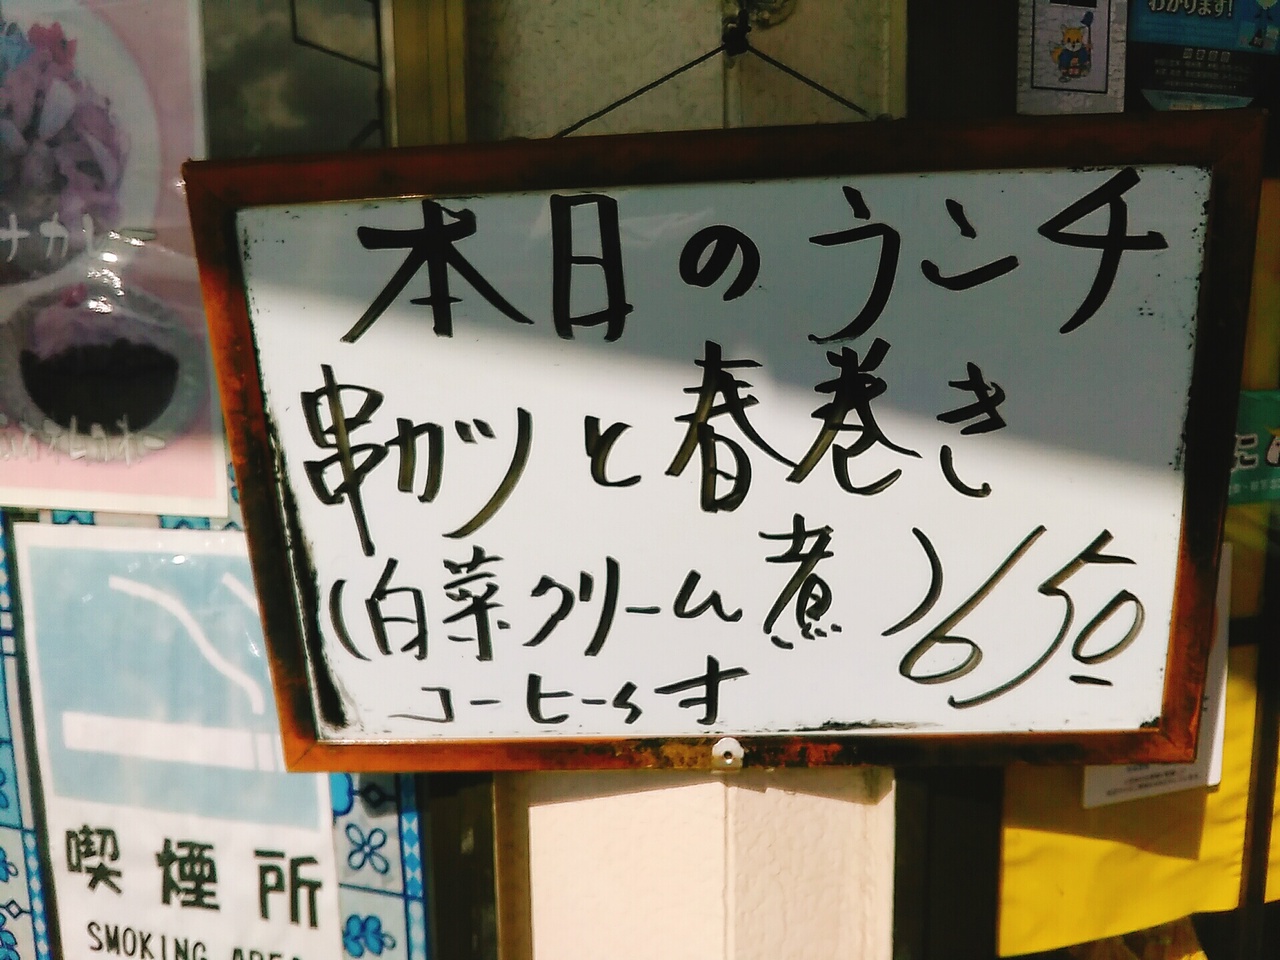 本日のランチ
串カツと春巻き
(白菜クリーム煮)650
コーヒー付
ナカレー
喫煙所
SMOKING AREA
わかります!